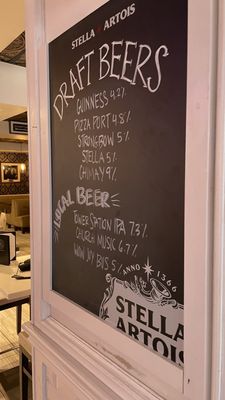 STELLA ARTOIS
DRAFT BEERS
GUINNESS 4.2%
PIZZA PORT 4.8%
STRONGBOW 5%
STELLA 5%
CHIMAY 9%
LOCAL BEER
TOWER STATION IPA 7.3%
CHURCH MUSIC 6.7%
WOW JOY BUS 5%
ANNO 1366
STELLA
ARTOIS